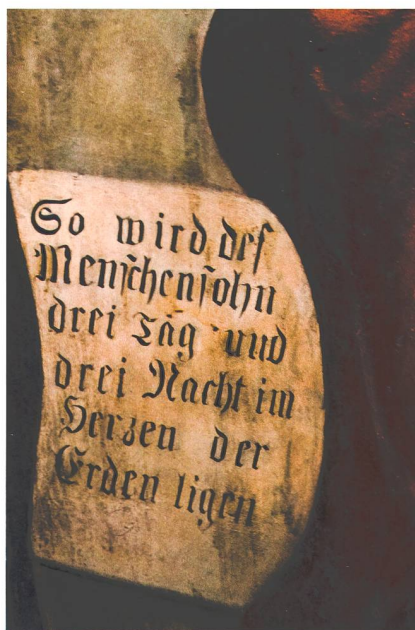 So wird des
Menschensohn
drei Tag und
drei Nacht im
Herzen der
Erden ligen